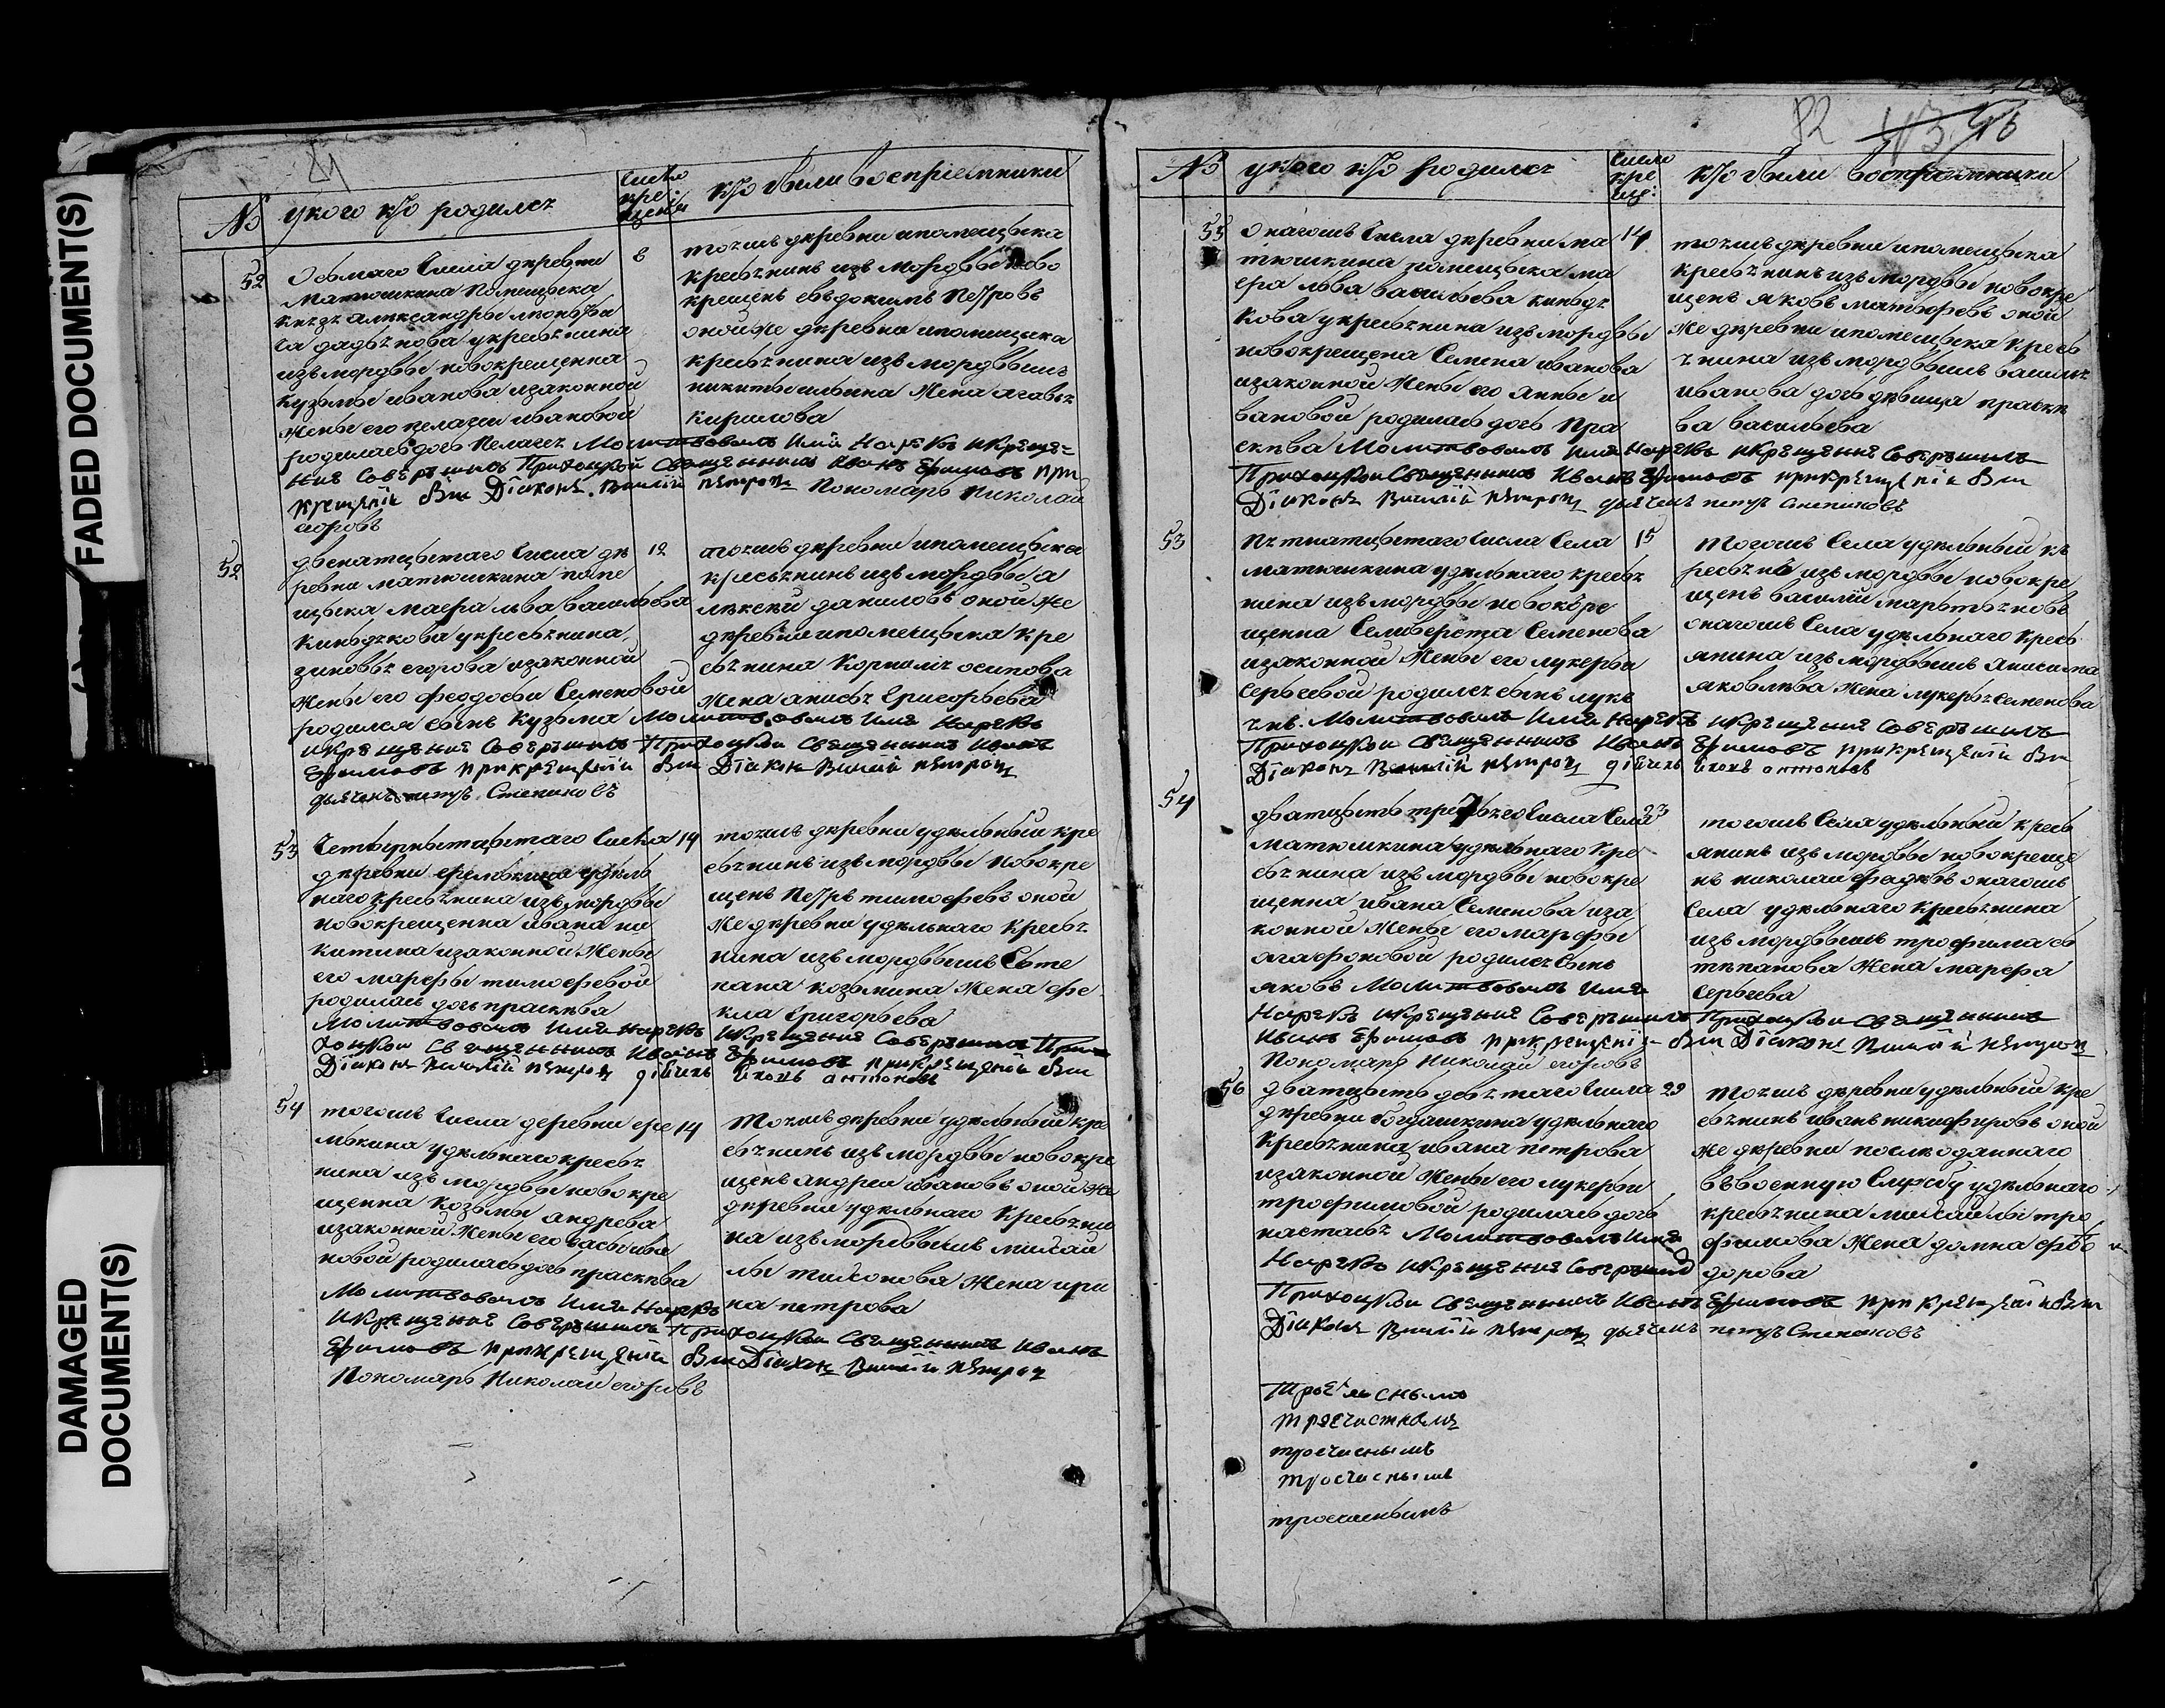 FADED DOCUMENT(S)
DAMAGED
DOCUMENT(S)
81
№
укого кто родилсѧ
Число
кре
щенія
кто были восприемники
52
Осьмаго Числа деревни
Матюшкина Помещика
кнѧзѧ александры леонтьи
ча дадьѧнова укресьѧнина
изъ мордвы новокрещенна
кузьмы иванова изаконной
жены его пелагеи ивановой
родилась дочь Пелагеѧ Молитвовалъ Имя Нарекъ Икреще=
ние Совершилъ Приходцкой Священникъ Иванъ Ефимовъ при
крещеніи был Діаконъ Василій петровъ Пономарь Николай
егоровъ
8
тоежъ деревни и помещика
кресьѧнинъ изъ мордвы ново
крещенъ евъдокимъ Петровъ
оной же деревни ипомещика
кресьѧнина изъ мордвы ж
никиты ильина жена агавьѧ
кирилова
52
двенатцетаго Числа де
ревни матюшкина поме
щика маера льва васильева
киньдѧкова укресьѧнина
зиновьѧ егорова изаконной
жены его феодосьи Семеновой
родился сынъ Кузьма Молитвовалъ Имя Нарекъ
Икрещение Совершилъ Приходцкой Священникъ Иванъ
Ефимовъ при крещеніи был Діаконъ Василій петровъ
дьячекъ петръ Степановъ
12
тоежъ деревни ипомещика
кресьѧнинъ изъ мордвы а
лексей даниловъ оной же
деревни ипомещика кре
сьѧнина Корнилѧ осипова
Жена анисьѧ Григорьева
53
Четырнатцетаго Числа
деревни ерелькина удель
наго кресьѧнина изъ мордвы
новокрещенна ивана ни
китина изаконной жены
его марефы тимофеевой
родилась дочь прасьева
Молитвовалъ Имя Нарекъ Икрещение Совершилъ При
ходцкой Священникъ Иванъ Ефимовъ при крещеніи был
Діаконъ Василій петровъ дьячекъ Іяковъ антоновъ
14
тоежъ деревни удельный кре
сьѧнинъ изъ мордвы новокре
щенъ Петръ тимофеевъ оной
же деревни удельнаго кресьѧ
нина изъ мордвы жъ Сте
пана козьмина Жена фе
кла Григорьева
54
тогожъ Числа деревни ере
лькина удельнаго кресьѧ
нина изъ мордвы новокре
щенна Козьмы андрева
изаконной жены его васы ива
новой родилась дочь праскева
Молитвовалъ Имя Нарекъ
Икрещение Совершилъ Приходцкой Священникъ Иванъ
Ефимовъ при крещеніи был Діаконъ Василій петровъ
Пономарь Николай егоровъ
14
Тоежъ деревни удельный кре
сьѧнинъ изъ мордвы новокре
щенъ андрей ивановъ оной же
деревни удельнаго кресьѧни
на изъ мордвы жъ михаи
лы тихонова жена ири
на петрова
82
№
укого кто родилсѧ
Числа
кре
ще:
кто были восприемники
55
Онагожъ Числа деревни ма
тюшкина помещика ма
ера льва васильева киньдѧ
кова укресьѧнина изъ мордвы
новокрещена Семена иванова
изаконной жены его анны и
вановой родилась дочь Пра
скева Молитвовалъ Имя Нарекъ Икрещение Совершилъ
Приходцкой Священникъ Иванъ Ефимовъ при крещеніи был
Діаконъ Василій петровъ дьячекъ петръ степановъ
14
тоежъ деревни ипомещика
кресьѧнинъ изъ мордвы новокре
щенъ яковъ матьвревъ оной
же деревни ипомещика кресь
ѧнина изъ мордвы жъ василья
иванова дочь девица праске
ва васильева
53
Пѧтнатцетаго Числа Села
матюшкина удельнаго кресьѧ
нина изъ мордвы новокре
щенна Селиверста Семенова
изаконной жены его лукерьи
сергеевой родилсѧ сынъ лукь
ѧнъ Молитвовалъ Имя Нарекъ Икрещение Совершилъ
Приходцкой Священникъ Иванъ Ефимовъ при крещеніи был
Діаконъ Василій петровъ дьячекъ Іяковъ антоновъ
15
Тогожъ Села удельный к
ресьѧнъ изъ мордвы новокре
щенъ василий мартьѧновъ
онагожъ Села удельнаго кресь
янина изъ мордвы жъ анисима
яковлева жена лукерьѧ Семенова
54
дватцеть третьѧго Числа Села
матюшкина удельнаго кре
сьѧнина изъ мордвы новокре
щенна ивана Семенова иза
конной жены его марефы
агафоновой родилсѧ Сынъ
яковъ Молитвовалъ Имя
Нарекъ Икрещение Совершилъ Приходцкой Священникъ
Иванъ Ефимовъ при крещеніи был Діаконъ Василій петровъ
Пономарь Николай егоровъ
23
тогожъ Села удельный кресь
янинъ изъ мордвы новокреще
нъ николай фадеевъ онагожъ
Села удельнаго кресьѧнина
изъ мордвы жъ трофима сь
тепанова жена марефа
Сергеева
56
дватцеть девѧтаго Числа
деревни богдашкина удельнаго
кресьѧнина ивана петрова
изаконной жены его лукерьи
трофимовой родилась дочь
настасьѧ Молитвовалъ Имя
Нарекъ Икрещение Совершилъ
Приходцкой Священникъ Иванъ Ефимовъ при крещеніи был
Діаконъ Василій петровъ дьячекъ петръ Степановъ
29
Тоежъ деревни удельный кре
сьѧнинъ иванъ никифоровъ оной
же деревни после отданнаго
въ военную Службу удельнаго
кресьѧнина михайлы тро
фимова жена домна фео
дорова
троечаснымъ
троечаснымъ
троечаснымъ